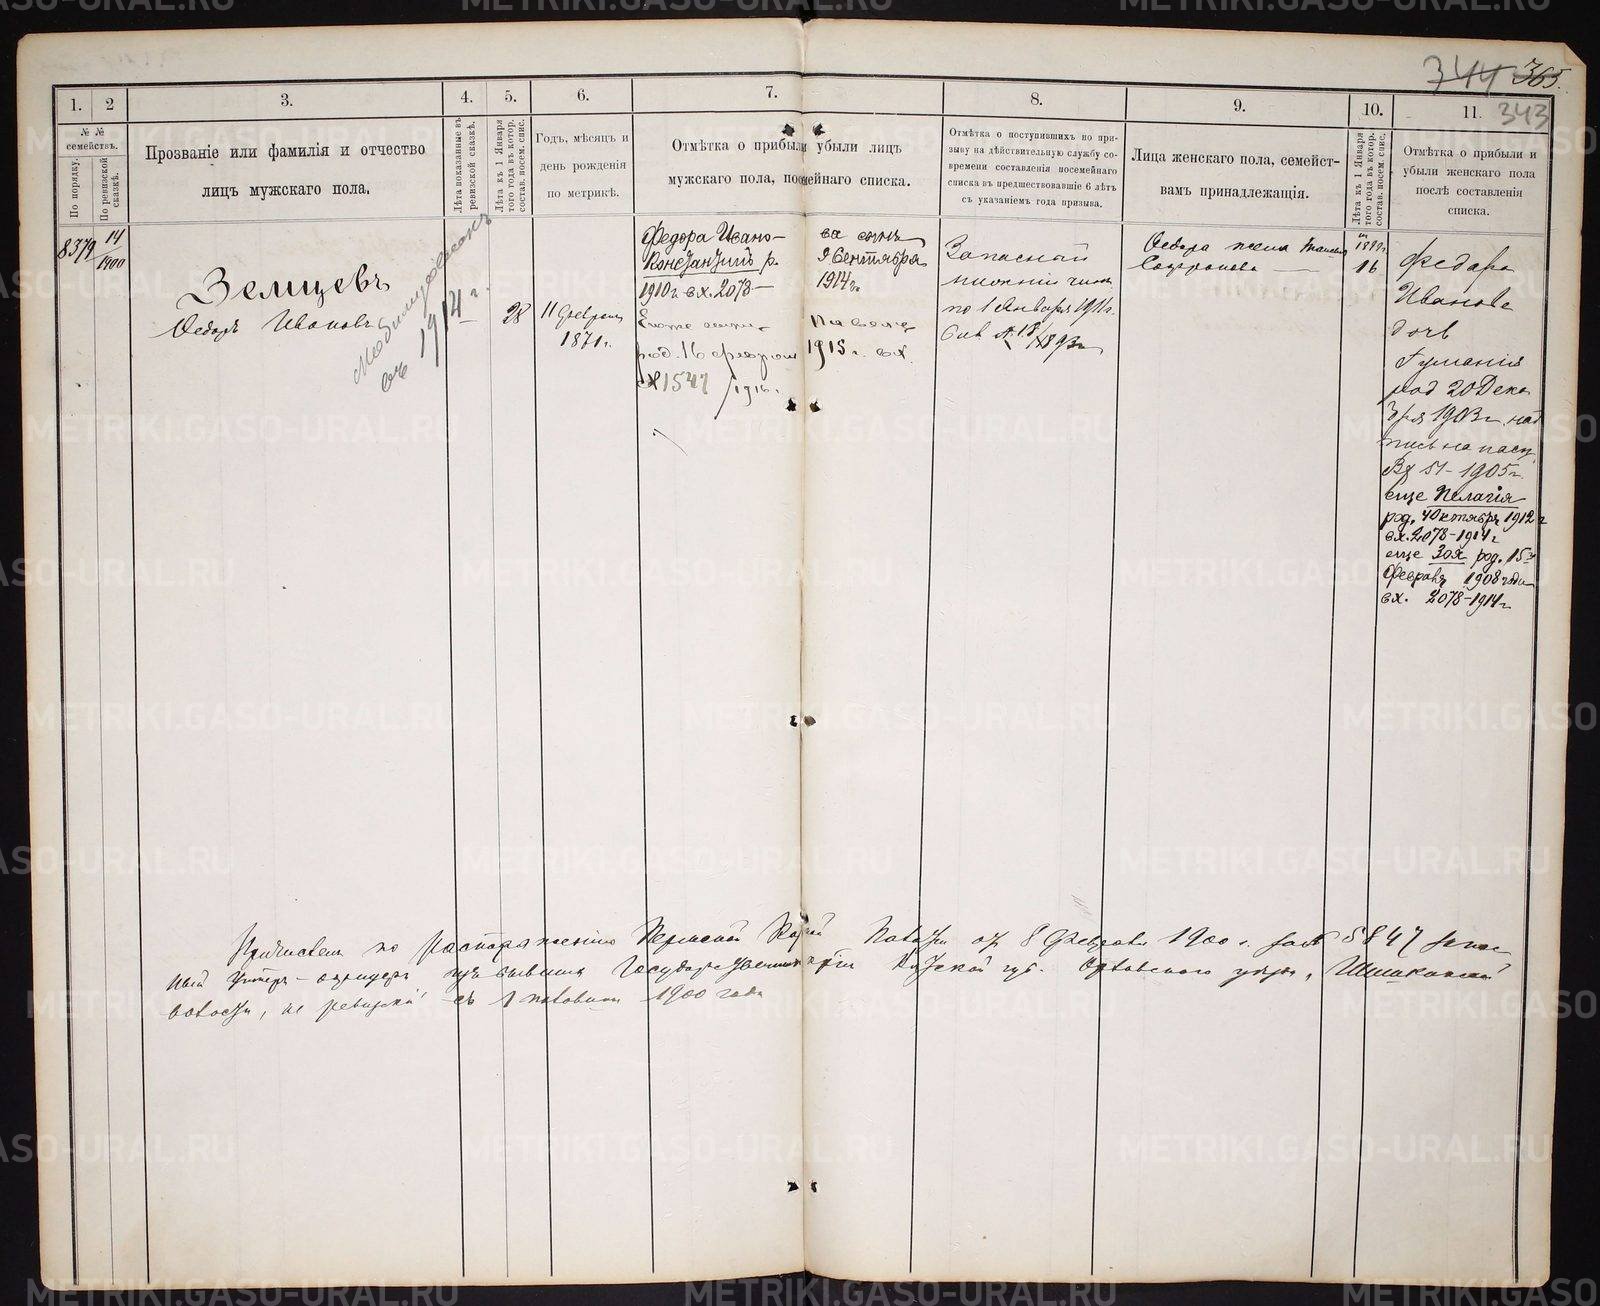 744 365.
343
1.
2
3.
4.
5.
6.
7.
8.
9.
10.
11.
№ №
семействъ.
По порядку.
По ревизской
сказкѣ.
Прозваніе или фамилія и отчество
лицъ мужскаго пола.
Лѣта показанные въ
ревизской сказкѣ.
Лѣта къ 1 Января
того года въ котор.
состав. посем. спис.
Годъ, мѣсяцъ и
день рожденія
по метрикѣ.
Отмѣтка о прибыли убыли лицъ
мужскаго пола, посемейнаго списка.
Отмѣтка о поступившихъ по при-
зыву на дѣйствительную службу со-
времени составленія посемейнаго
списка въ предшествовавшіе 6 лѣтъ
съ указаніемъ года призыва.
Лица женскаго пола, семейст-
вамъ принадлежащія.
Лѣта къ 1 Января
того года въ котор.
состав. посем. спис.
Отмѣтка о прибыли и
убыли женскаго пола
послѣ составленія
списка.
8379
14
1900
Земцевъ
Ѳедоръ Ивановъ
Мобилизованъ
въ 1914 г.
28
11 Февраля
1871 г.
Федора Ивано-
ва сынъ
Константинъ р.
9 Сентября
1910 г. вх. 2078 —
1914 г.
род. 16 февраля
1915 г. вх.
1547 /1916 г.
Запасной
по 1 Января 1911 г.
1893 г.
Ѳедора жена
Софронова
16
Федора
Иванова
дочь
род 20 Дека
бря 1903 г. над
пись на пасп.
Вх 51 — 1905 г.
еще Пелагія
род. 4 октября 1912 г
вх. 2078 — 1914 г
еще Зоя род. 15
Февраля 1908 года
вх. 2078 — 1914 г
Причисленъ по распоряженію Пермской Каз. Палаты отъ 8 Февраля 1900 г. за № 5847 запас
ный унтеръ-офицеръ изъ бывшихъ Государственныхъ Вятской губ. Орловскаго уѣзда,
волости, не ревизскій съ 1 половины 1900 года
METRIKI.GASO-URAL.RU